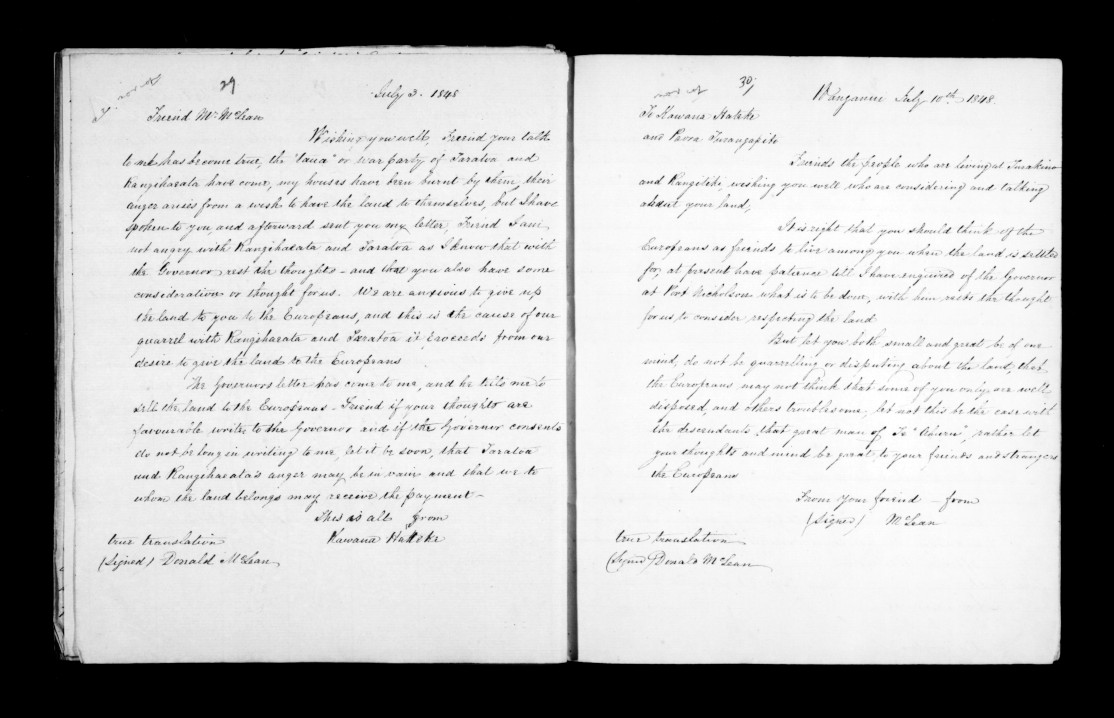 29
July 3. 1848
Friend Mr McLean
Wishing you well, Friend your talk
to me has become true, the "taua" or war party of Taratoa and
Rangihaeata have come, my houses have been burnt by them, their
anger arises from a wish to have the land to themselves, but I have
spoken to you, and afterward sent you my letter, Friend I am
not angry with Rangihaeata and Taratoa as I know that with
the Governor rest the thoughts - and that you also have some
consideration or thought for us. We are anxious to give up
the land to you to the Europeans, and this is the cause of our
quarrel with Rangihaeata and Taratoa it proceeds from our
desire to give the land to the Europeans
The Governors letter has come to me, and he tells me to
sell the land to the Europeans - Friend if your thoughts are
favourable write to the Governor and if the Governor consents
do not be long in writing to me, let it be soon, that Taratoa
and Rangihaeata's anger may be in vain and that we to
whom the land belongs may receive the payment -
This is all from
Kawana Hakeke
true translation
(Signed) Donald McLean
30
Wanganui July 10th 1848.
To Kawana Hakeke
and Paora Turangapito
Friends the people who are living at Turakino
and Rangitiki, wishing you well who are considering and talking
about your land,
It is right that you should think of the
Europeans as friends to live among you when the land is settled
for, at present have patience till I have enquired of the Governor
at Port Nicholson what is to be done, with him rests the thought
for us to consider respecting the land
But let you both small and great be of one
mind, do not be quarrelling or disputing about the land, that
the Europeans may not think that some of you only are well
disposed, and others troublesome, let not this be the case with
the descendants, that great man of Te " rather let
your thoughts and mind be great to your friends and strangers
the Europeans
From your friend - from
(Signed) McLean
true translation
(Signed) Donald McLean